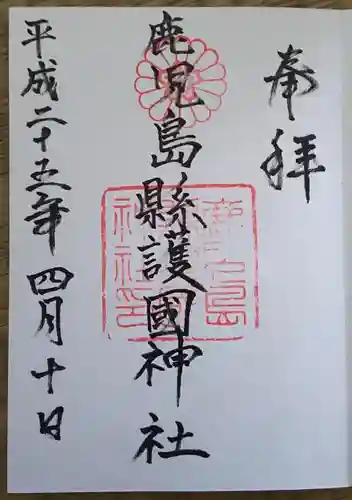 奉拝
鹿児島縣護國神社
平成二十五年四月十日